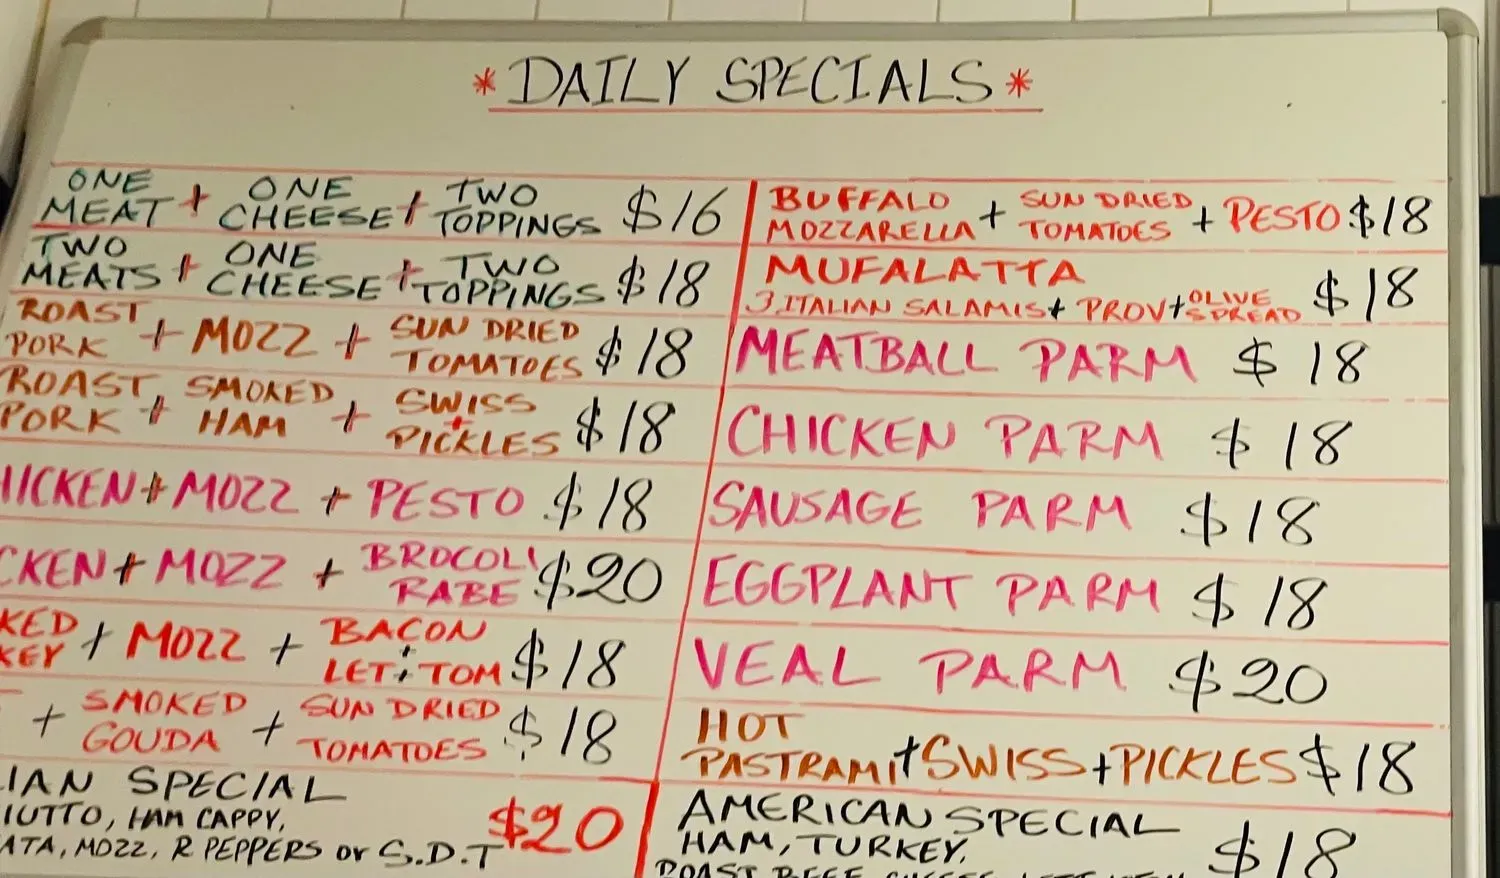 * DAILY SPECIALS *
ONE MEAT + ONE CHEESE + TWO TOPPINGS $16
TWO MEATS + ONE CHEESE + TWO TOPPINGS $18
ROAST PORK + MOZZ + SUN DRIED TOMATOES $18
ROAST PORK + SMOKED HAM + SWISS + PICKLES $18
HICKEN + MOZZ + PESTO $18
CKEN + MOZZ + BROCOLI RABE $20
KED KEY + MOZZ + BACON + LET + TOM $18
+ SMOKED GOUDA + SUN DRIED TOMATOES $18
IAN SPECIAL
IUTTO, HAM CAPPY, $20
ATA, MOZZ, R PEPPERS or S.D.T
BUFFALO MOZZARELLA + SUN DRIED TOMATOES + PESTO $18
MUFALATTA
3 ITALIAN SALAMIS + PROV + OLIVE SPREAD $18
MEATBALL PARM $18
CHICKEN PARM $18
SAUSAGE PARM $18
EGGPLANT PARM $18
VEAL PARM $20
HOT PASTRAMI + SWISS + PICKLES $18
AMERICAN SPECIAL
HAM, TURKEY, $18
ROAST BEEF